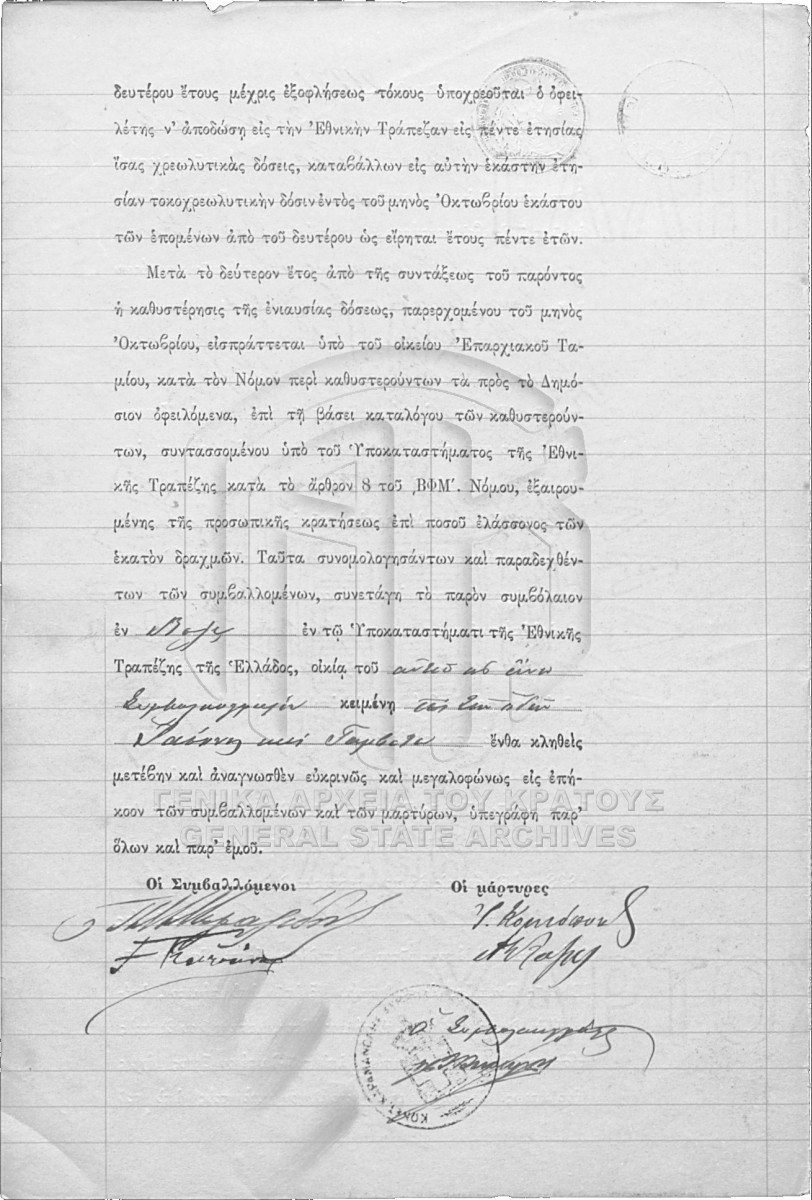 δευτέρου ἔτους μέχρις ἐξοφλήσεως τόκους ὑποχρεοῦται ὁ ὀφει-
λέτης ν' ἀποδώσῃ εἰς τὴν Ἐθνικὴν Τράπεζαν εἰς πέντε ἐτησίας
ἴσας χρεωλυτικὰς δόσεις, καταβάλλων εἰς αὐτὴν ἑκάστην ἐτη-
σίαν τοκοχρεωλυτικὴν δόσιν ἐντὸς τοῦ μηνὸς Ὀκτωβρίου ἑκάστου
τῶν ἑπομένων ἀπὸ τοῦ δευτέρου ὡς εἴρηται ἔτους πέντε ἐτῶν.
Μετὰ τὸ δεύτερον ἔτος ἀπὸ τῆς συντάξεως τοῦ παρόντος
ἡ καθυστέρησις τῆς ἐνιαυσίας δόσεως, παρερχομένου τοῦ μηνὸς
Ὀκτωβρίου, εἰσπράττεται ὑπὸ τοῦ οἰκείου Ἐπαρχιακοῦ Τα-
μίου, κατὰ τὸν Νόμον περὶ καθυστερούντων τὰ πρὸς τὸ Δημό-
σιον ὀφειλόμενα, ἐπὶ τῇ βάσει καταλόγου τῶν καθυστερούν-
των, συντασσομένου ὑπὸ τοῦ Ὑποκαταστήματος τῆς Ἐθνι-
κῆς Τραπέζης κατὰ τὸ ἄρθρον 8 τοῦ ͵ΒΦΜ΄. Νόμου, ἐξαιρου-
μένης τῆς προσωπικῆς κρατήσεως ἐπὶ ποσοῦ ἐλάσσονος τῶν
ἑκατὸν δραχμῶν. Ταῦτα συνομολογησάντων καὶ παραδεχθέν-
των τῶν συμβαλλομένων, συνετάγη τὸ παρὸν συμβόλαιον
ἐν Βόλῳ ἐν τῷ Ὑποκαταστήματι τῆς Ἐθνικῆς
Τραπέζης τῆς Ἑλλάδος, οἰκίᾳ τοῦ
κειμένῃ
καὶ ἔνθα κληθεὶς
μετέβην καὶ ἀναγνωσθὲν εὐκρινῶς καὶ μεγαλοφώνως εἰς ἐπή-
κοον τῶν συμβαλλομένων καὶ τῶν μαρτύρων, ὑπεγράφη παρ'
ὅλων καὶ παρ' ἐμοῦ.
ΓΕΝΙΚΑ ΑΡΧΕΙΑ ΤΟΥ ΚΡΑΤΟΥΣ
GENERAL STATE ARCHIVES
Οἱ Συμβαλλόμενοι Οἱ μάρτυρες
Ὁ Συμβολαιογράφος